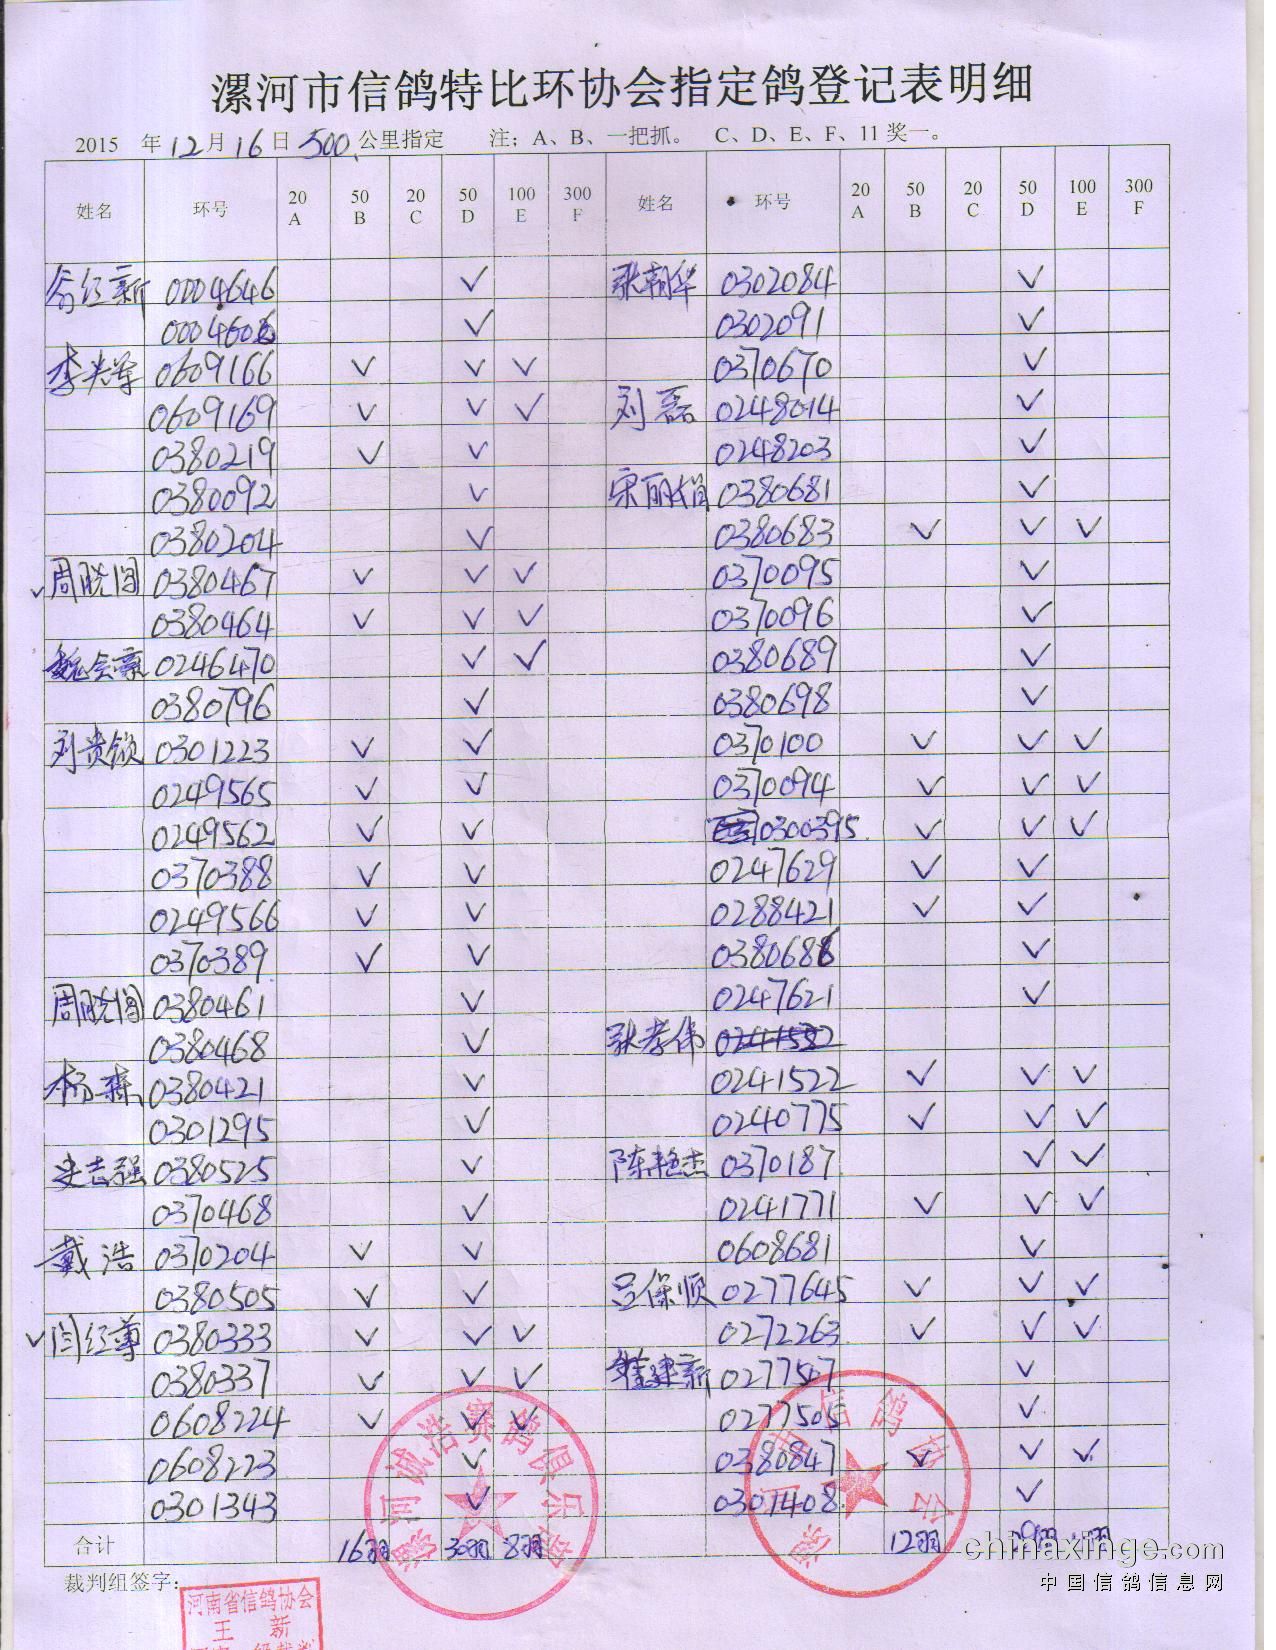 漯河市信鸽特比环协会指定鸽登记表明细
2015 年 12 月 16 日 500 公里指定 注；A、B、一把抓。 C、D、E、F、11 奖一。
姓名 环号 20 A 50 B 20 C 50 D 100 E 300 F 姓名 环号 20 A 50 B 20 C 50 D 100 E 300 F
0004646 ✓ 张朝华 0302084 ✓
0004606 ✓ 0302091 ✓
李光军 0609166 ✓ ✓ ✓ 0370670 ✓
0609169 ✓ ✓ ✓ 刘磊 0248014 ✓
0380219 ✓ ✓ 0248203 ✓
0380092 ✓ 宋丽娟 0380681 ✓
0380204 ✓ 0380683 ✓ ✓ ✓
✓ 0380467 ✓ ✓ ✓ 0370095 ✓
0380464 ✓ ✓ ✓ 0370096 ✓
0246470 ✓ ✓ 0380689 ✓
0380796 ✓ 0380698 ✓
刘贵锁 0301223 ✓ ✓ 0370100 ✓ ✓ ✓
0249565 ✓ ✓ 0370094 ✓ ✓ ✓
0249562 ✓ ✓ 0300395 ✓ ✓ ✓
0370388 ✓ ✓ 0247629 ✓ ✓
0249566 ✓ ✓ 0288421 ✓ ✓
0370389 ✓ ✓ 0380686 ✓
0380461 ✓ 0247621 ✓
0380468 ✓ 张孝伟
杨森 0380421 ✓ 0241522 ✓ ✓ ✓
0301295 ✓ 0240775 ✓ ✓ ✓
史志强 0380525 ✓ 陈艳杰 0370187 ✓ ✓
0370468 ✓ 0241771 ✓ ✓ ✓
戴浩 0370204 ✓ ✓ 0608681 ✓
0380505 ✓ ✓ 豆保顺 0277645 ✓ ✓ ✓
✓ 闫红尊 0380333 ✓ ✓ ✓ 0272263 ✓ ✓ ✓
0380337 ✓ ✓ ✓ 建新 0277507 ✓
0608224 ✓ ✓ ✓ 0277505 ✓
0608223 ✓ 0380847 ✓ ✓ ✓
0301343 ✓ 0301408 ✓
合计 16羽 30羽 8羽 12羽
漯河诚浩赛鸽俱乐部
漯河市信鸽协会
chinaxinge.com
中国信鸽信息网
裁判组签字：
河南省信鸽协会
王 新